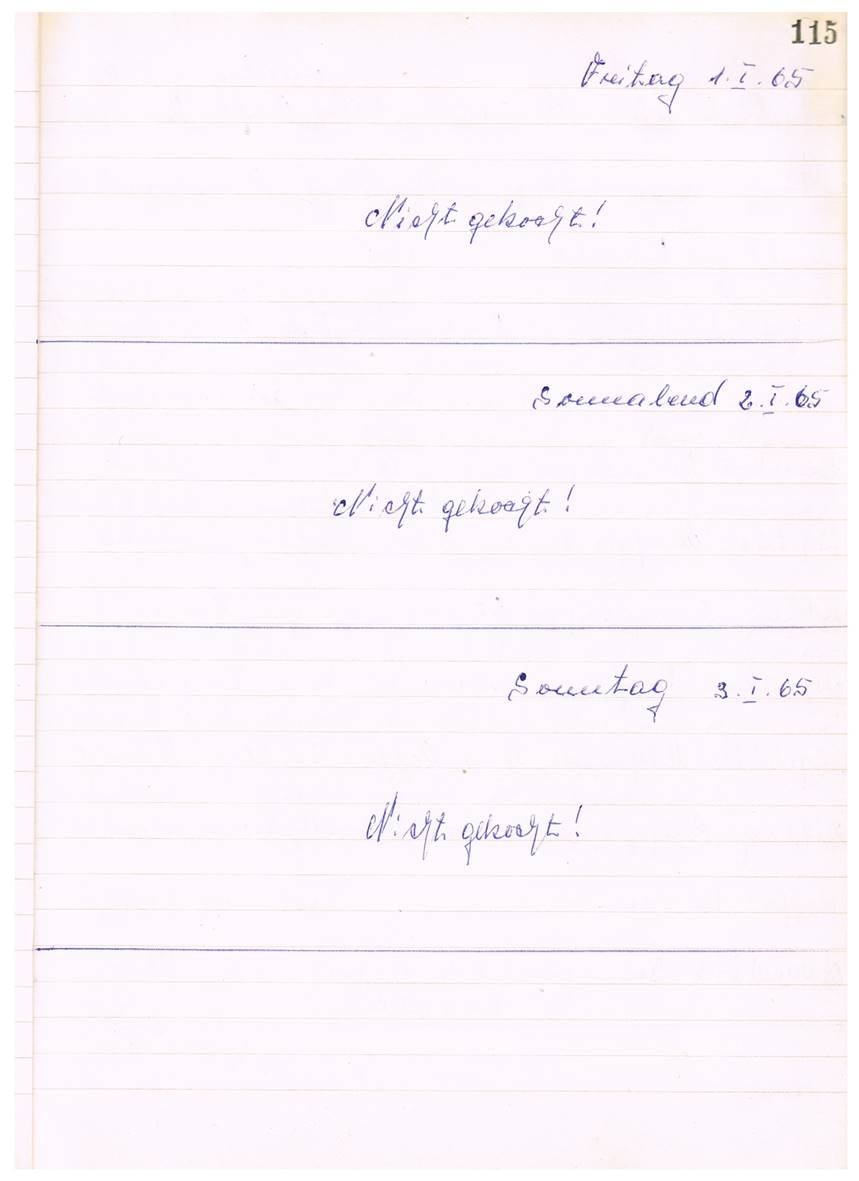 115
Freitag 1.I.65
Nicht gekocht!
Sonnabend 2.I.65
Nicht gekocht!
Sonntag 3.I.65
Nicht gekocht!